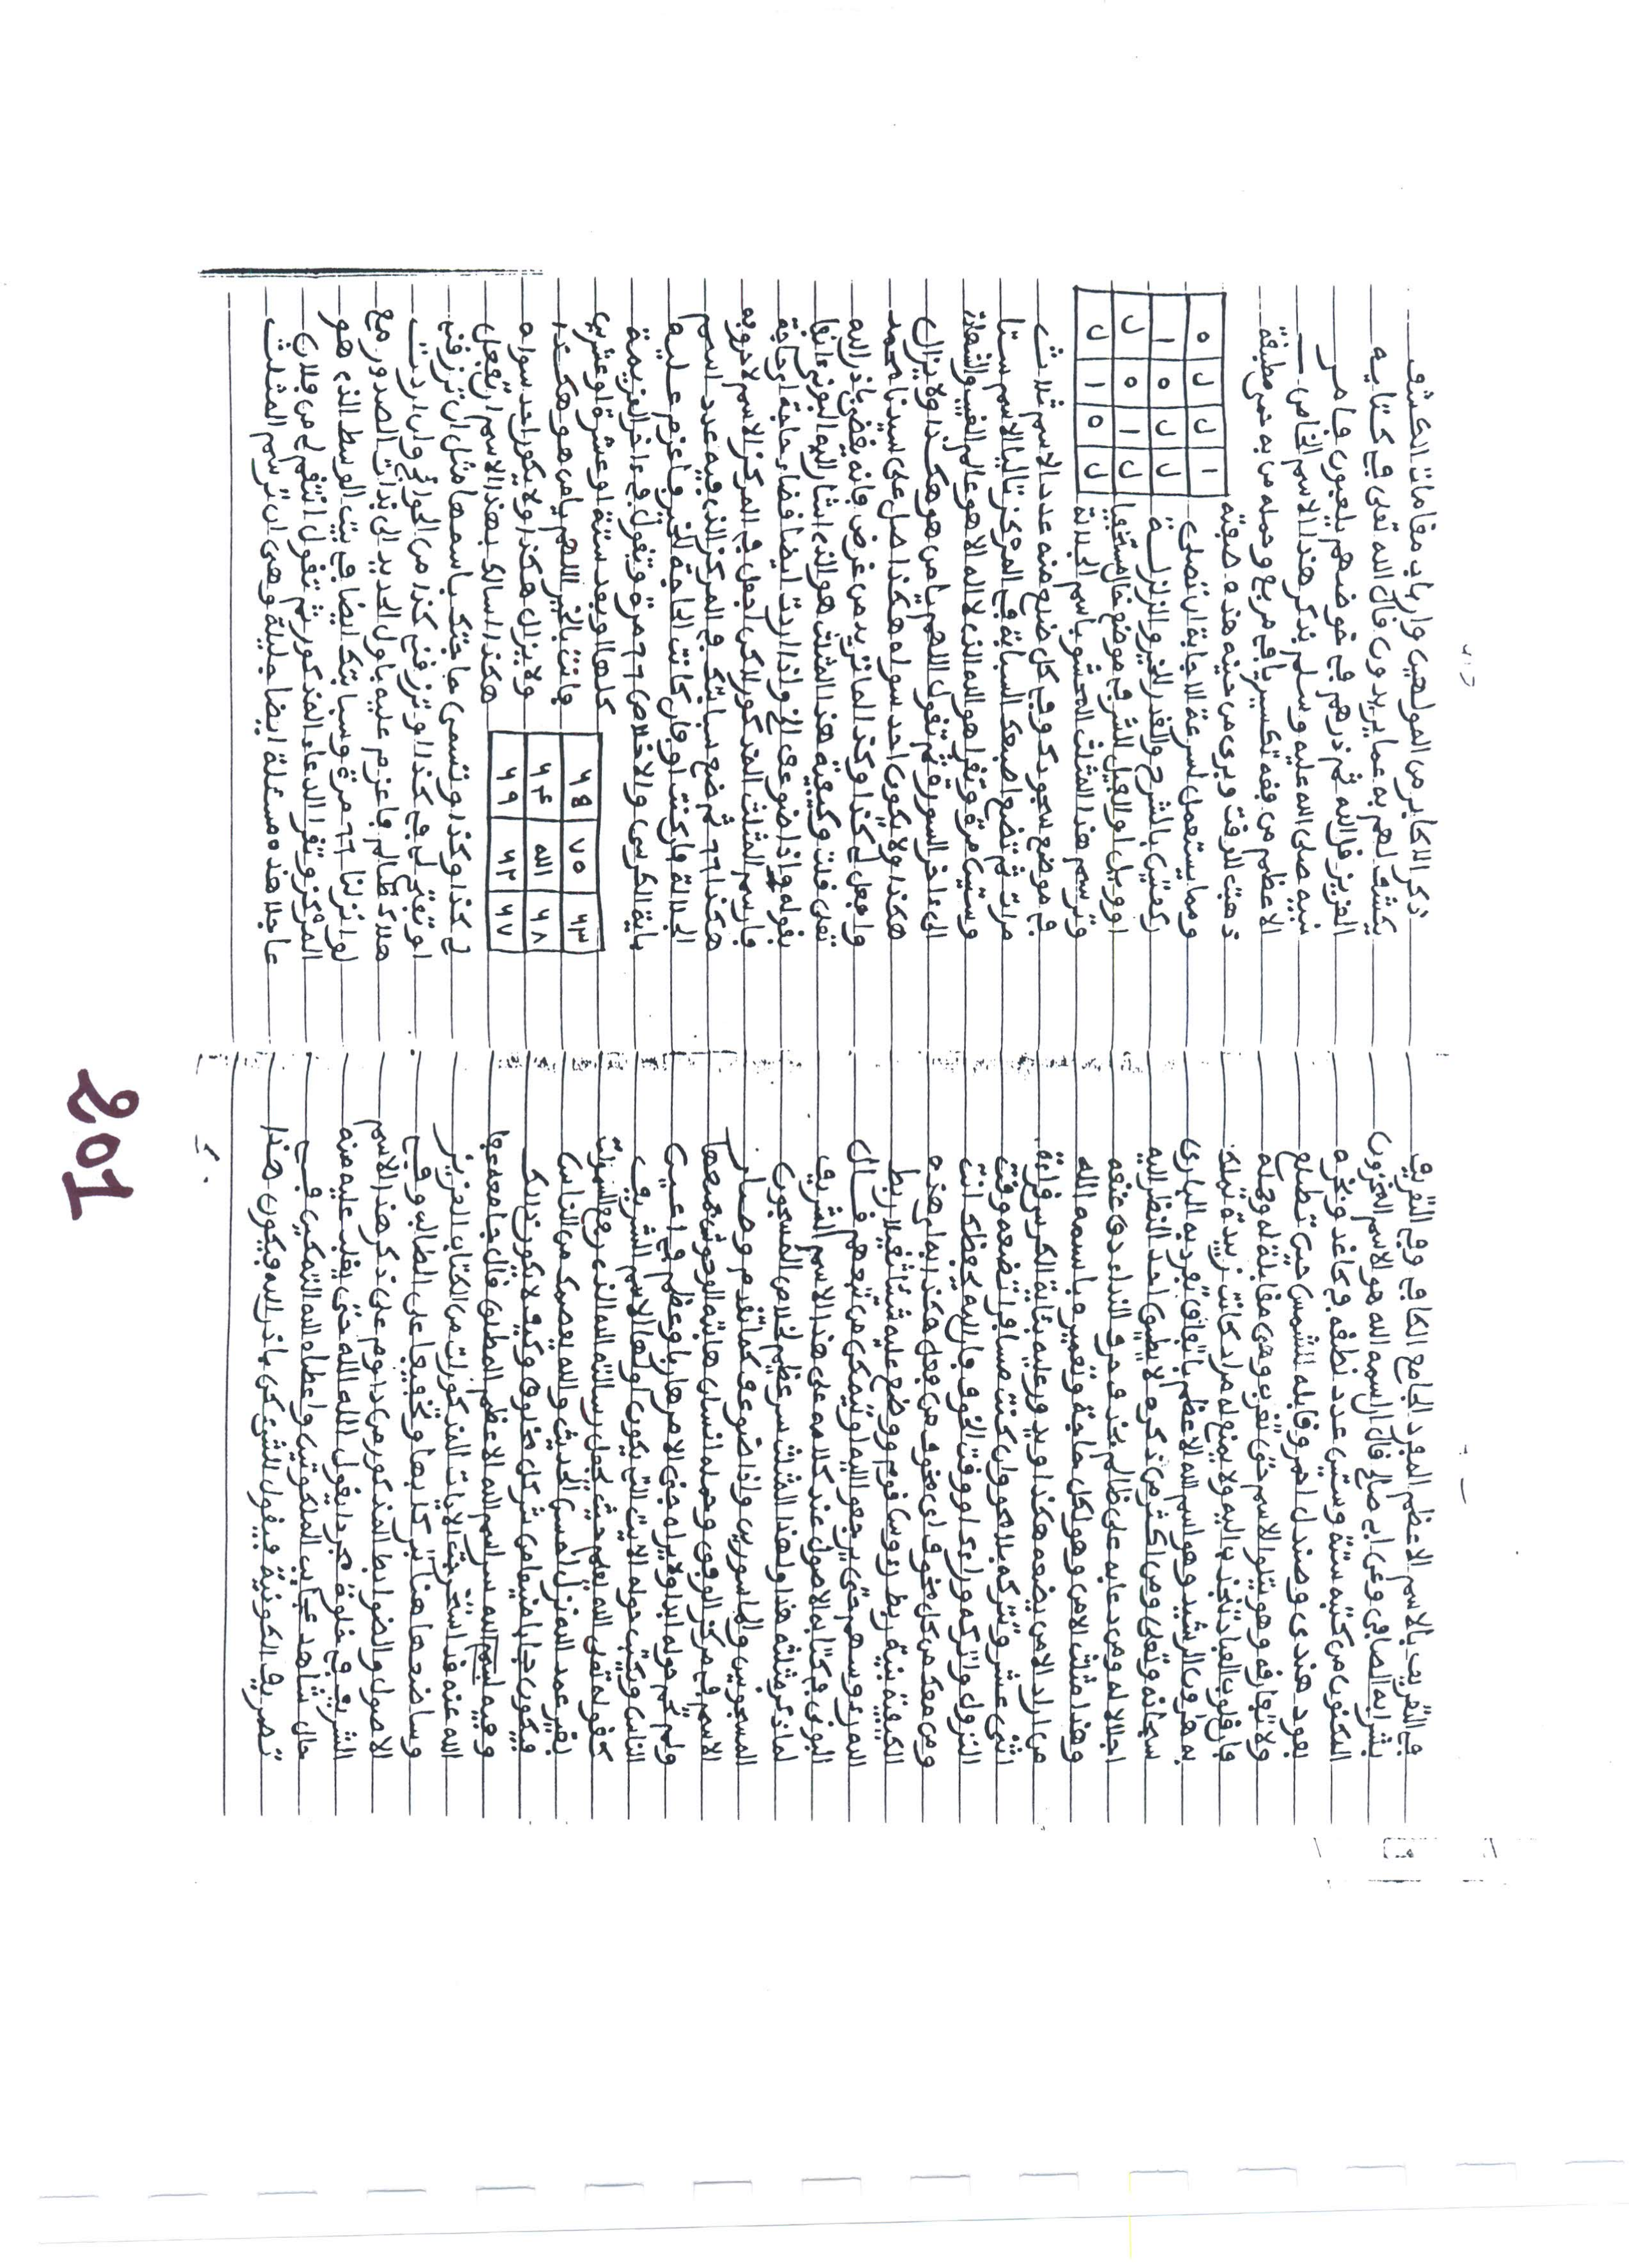 في التصريف بالاسم الاعظم المفرد الجامع الكافي وفي التقريب
بشرابه الصافي وعن ابي صالح قال السمه الله هو الاسم المخزون
المكنون من كتبه ستة وستين عدد نطقه في كاغد وبخره
بعود هندي وصندل احمر وقابله للشمس حين تطلع
ولا يفارقه وهو يتلو الاسم حتى تغرب وهي مقابلة له وحمله
فان قلوب العباد تنجذب اليه ولا يمنع له مراد كانت زبيدة تملك
بها هرون الرشيد وهو اسم الله الاعظم باتفاق تفرد به الباري
سبحانه وتعلى ومن اكثر من ذكره لا يطيق احد النظر اليه
اجلالا له ومن دعا به على ظالم حرف النداء دون غيره
وهذا مثلث الامن وهو لكل حاجة وتعميره باسمه الله
من اراد الامن يضعه هكذا ويدور عليه باية الكرسي قراءة
اثنى عشر وتتركه بلا محو وان كنت مسافرا تضعه وقت
النزول واتركه وراءك او وقت الخوف فان الله يحفظك انت
ومن معك من كل مخوف اي مخوف من فعل هكذا بهذه
الكيفية بنية ربط رءوس قوم ووضع عليه شيئا ثقيلا ربط
الله رءوسهم حتى يرجعوا اليه او يتمكن من قال
البوني في كتابه الاصول عند كلامه على هذا الاسم الشريف
لما ذكر مثلثه هذا ولهذا المثلث سر عظيم لخلاص المسجون
المسجونين والماسورين واذا ضوعف كما تقدم وصار
الاسم في مركز الوفق وحمله انسان هابته الوحوش جميعها
ولم يحم حوله ابدا ولا يراه جني الا مر هاربا وعظم في اعين
الناس ويكتب حوله الايت التي يكون اولها الاسم الشريف
كقوله تعلى الله اعلم حيث يجعل رسالته الله الذي رفع السموات
بغير عمد الله نزل احسن الحديث والله يعصمك من الناس
فيكون حجابا منيعا من شر كل مخلوق وكيف لا يكون ذالك
وفيه سر اسم الله الاعظم المطلق قال جامعه عفا
الله عنه قد استخرجت الايات المذكورات من الكتاب العزيز
وساضعها هنا تبركا بها وتخفيفا على الطالب وفي
الاصول والضوابط المذكور من داوم على ذكر هذا الاسم
الشريف في خلوة مجردا يقول الله الله حتى يغلب عليه منه
حال شاهد عجايب الملكوتين واعطاه الله التمكين في
تصريف الكونية فيقول للشيء كن باذن الله فيكون هذا
ذكر الاكابر من المولهين وارباب مقامات الكشف
يكشف لهم به عما يريدون قال الله تعلى في كتابه
العزيز قل الله ثم ذرهم في خوضهم يلعبون فامر
نبيه صلى الله عليه وسلم بذكر هذا الاسم الخاص
الاعظم من وفقه تكسيريا في مربع وحمله من به حمى مطبقة
ذهبت للوقت وبرئ من حينه هذه صفته
ومما يستعمل لسرعة الاجابة ان تصلي
ركعتين بالشرح والقدر الخير والزلزلة
او ويل او الفيل للشر في موضع خال مستخفيا
وترسم هذا المثلث المحشو باسم الجلالة
ه ل ل ا
ا ه ل ل
ل ه ا ل
ل ا ه ل
في موضع سجودك وفي كل ضلع منه عدد الاسم ثلاث
مرات ثم تضع اصبعك السبابة في المركز تاليا الاسم ستا
وستين مرة وتقرا هو الله الذي لا اله الا هو عالم الغيب والشهادة
الى ءاخر السورة ثم تقول اللهم يا من هو هكذا ولا يزال
هكذا ولا يكون احد سواه هكذا صل على سيدنا محمد
وافعل لي كذا وكذا لما تريد من غرض فانه يقضى باذن الله
تعلى قلت وكيفية هذا المثلث هو الذي اشار اليه البوني ءانفا
بقوله واذا ضوعف الخ واذا اردت ايضا قضاء حاجة اي حاجة
فارسم المثلث المذكور لاكن اجعل في المركز الاسم لا حروفه
هكذا ٦٦ ثم ضع سبابتك في المركز الذي فيه عدد اسم
الجلالة واركنت او فان كانت الحاجة لخير فاعزم عليه
باية الكرسي والاخلاص ٦٦ مرة وتقول في ءاخر العزيمة
كلها او بعد ستة او عشرة او عشرين
فانت بالخير اللهم يا من هو هكذا
ولا يزال هكذا ولا يكون احد سواه
هكذا اسالك بهذا الاسم ان تفعل
٦٥ ٧٠ ٦٣
٦٤ الله ٦٨
٦٩ ٦٢ ٦٧
لي كذا وكذا وتسمى حاجتك باسمها مثل ان ترزقني
او تفتح لي في كذا او ترزقني كذا من الحوائج وان اردت
هلاك ظالم فاعزم عليه باول الحديد الى بذات الصدور مع
لو انزلنا ٦٦ مرة وسبابتك ايضا في بيت الوسط الذي هو
المركز وتقرا الدعاء المذكور ثم تقول انتقم لي من فلان
عاجلا هذه مسئلة ايضا جليلة وهي ان ترسم المثلث
201